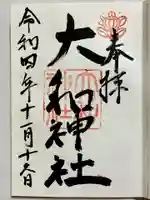 奉拝
大和神社
令和四年十月十六日